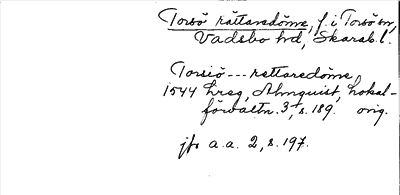 Torsö rättaredöme, f. i Torsö sn,
Vadsbo hd, Skarab.l.
Torsiö --- rettaredöme,
1544 hreg, Almquist, Lokal-
förvaltn. 3, s. 189. orig.
jfr a.a. 2, s. 197.